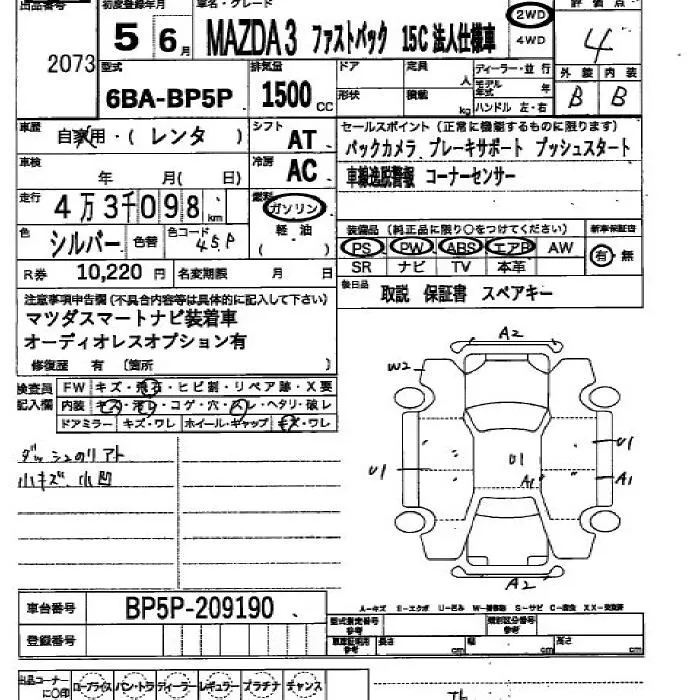 出品番号 初度登録年月 車名・グレード 評価点
2073 5 6月 MAZDA3 ファストバック 15C 法人仕様車 2WD 4WD 4
型式 排気量 ドア 定員 ディーラー・並行 外装 内装
6BA-BP5P 1500cc 人 モデル年式 年 B B
形状 積載 kg ハンドル 左・右
車歴 自家用・( レンタ ) シフト AT セールスポイント (正常に機能するものに限ります)
バックカメラ ブレーキサポート プッシュスタート
車検 年 月( 日) 冷房 AC 車線逸脱警報 コーナーセンサー
走行 4万3千098km 燃料 ガソリン
軽油
( )
色 シルバー 色替 色コード 45P
装備品 (純正品に限り○をつけてください) 新車保証書
PS PW ABS エアB AW 有・無
SR ナビ TV 本革
R券 10,220円 名変期限 月 日
後日品 取説 保証書 スペアキー
注意事項申告欄 (不具合内容等は具体的に記入して下さい)
マツダスマートナビ装着車
オーディオレスオプション有
修復歴 有 〔箇所 〕
検査員記入欄 FW キズ・ ・ヒビ割・リペア跡・X要
内装 キズ・汚レ・コゲ・穴・スレ・ヘタリ・破レ
ドアミラー キズ・ワレ ホイール・キャップ キズ・ワレ
小キズ、小凹
A2
W2
U1
U1
U1
A1
A1
A2
A-キズ E-エクボ U-凹み W-補修跡 S-サビ C-腐食 XX-交換済
車台番号 BP5P-209190
登録番号
型式指定番号 参考 類別区分番号 参考
車庫証明用 参考 長さ cm 幅 cm 高さ cm
出品コーナーに○印 ロープライス バン・トラ ディーラー レギュラー プラチナ チャンス